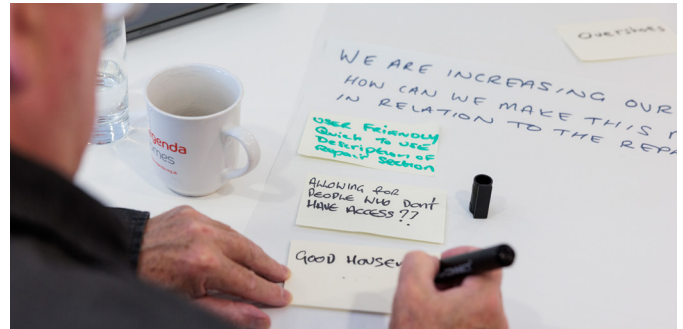 Overshoes
WE ARE INCREASING OUR
HOW CAN WE MAKE THIS
IN RELATION TO THE
USER FRIENDLY
Quick To USE
Description of
Repair Section
ALLOWING FOR
PEOPLE WHO DONT
HAVE ACCESS??
GOOD
genda